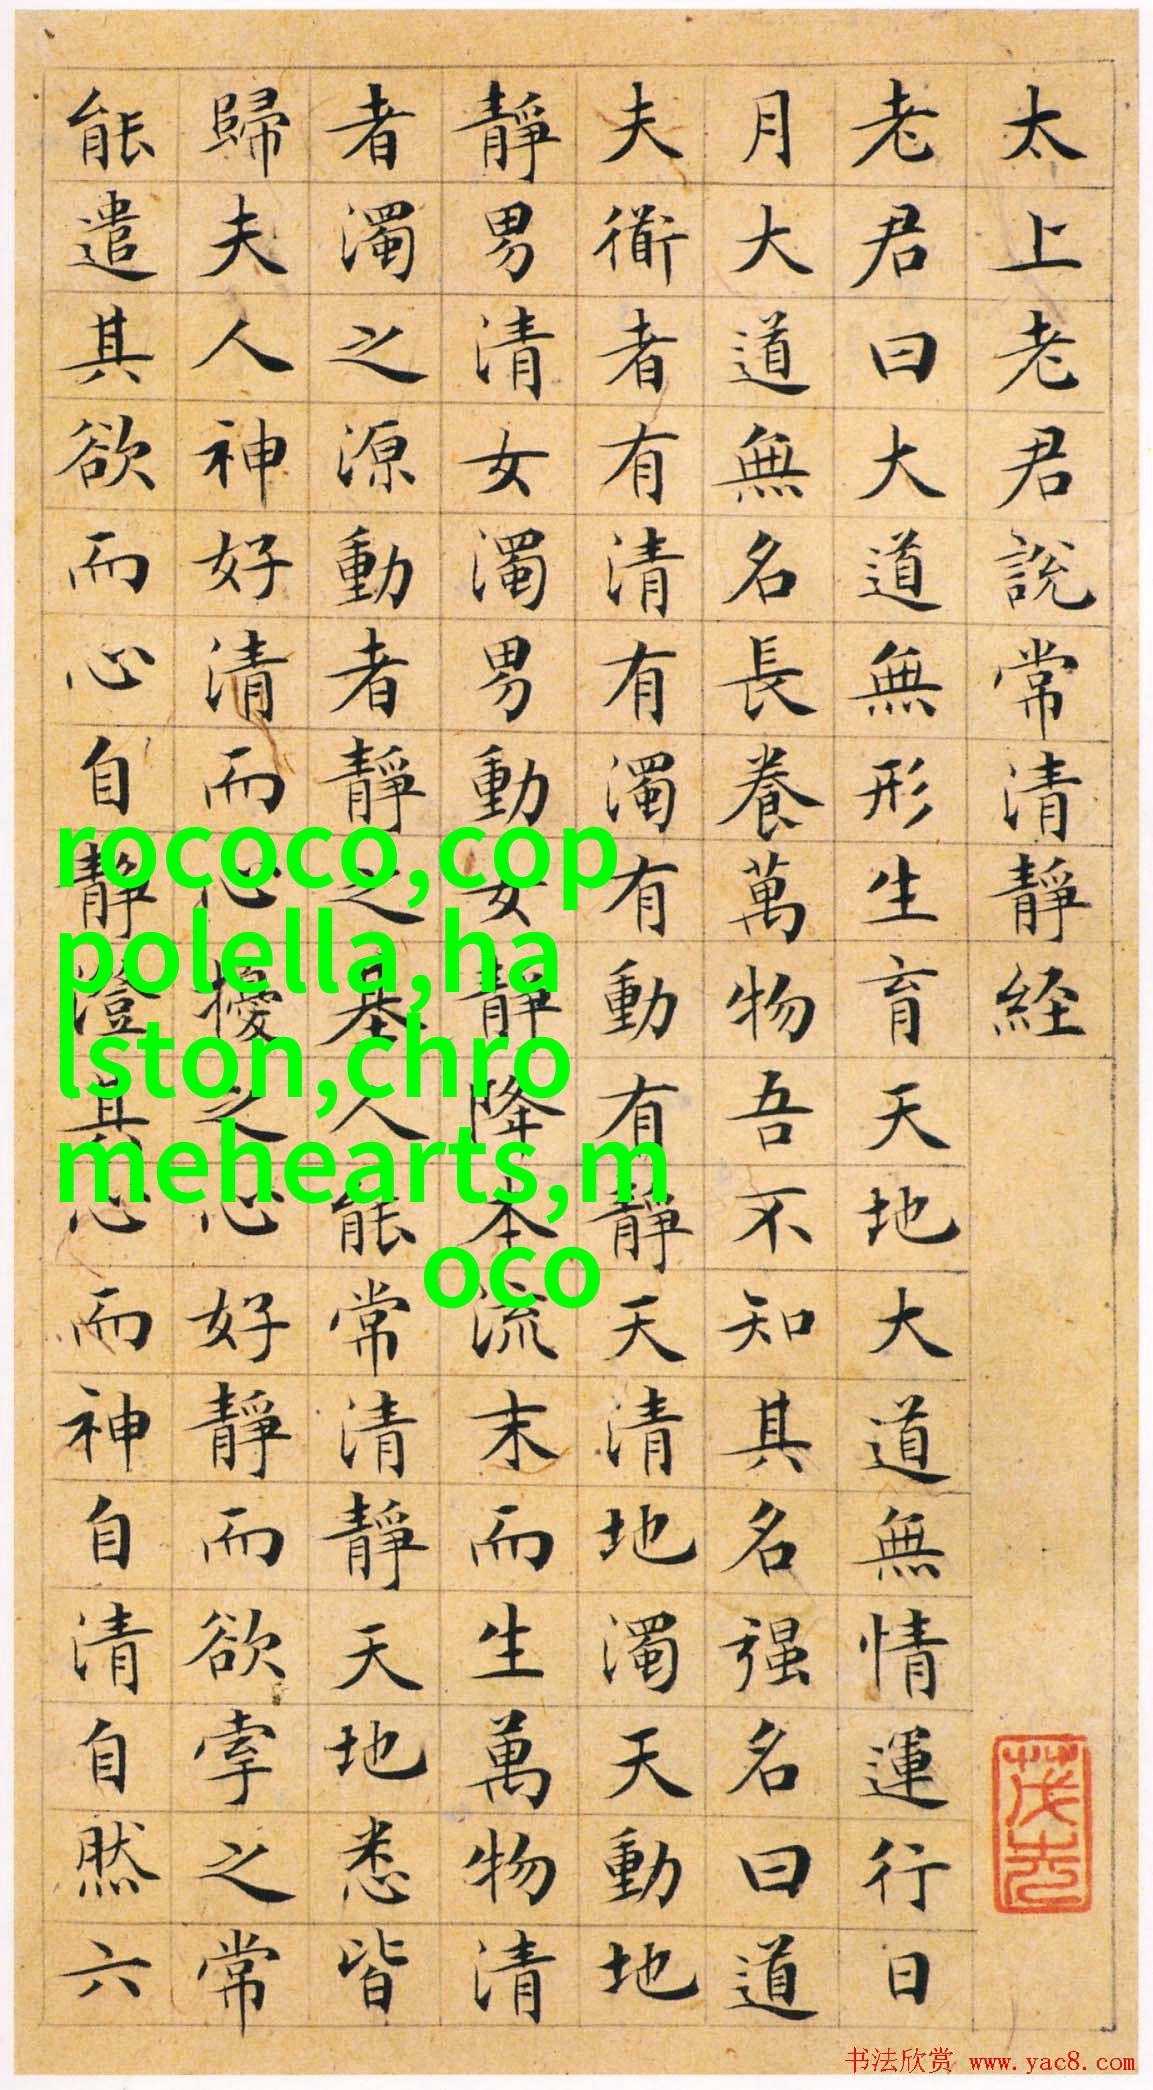 太上老君說常清靜経
老君曰大道無形生育天地大道無情運行日
月大道無名長養萬物吾不知其名强名曰道
夫衜者有清有濁有動有靜天清地濁天動地
靜男清女濁男動女靜降本流末而生萬物清
者濁之源動者靜之基人能常清靜天地悉皆
歸夫人神好清而心擾之心好靜而欲牽之常
能遣其欲而心自靜澄其心而神自清自然六
rococo,cop
polella,ha
lston,chro
mehearts,m
oco
书法欣赏 www.yac8.com